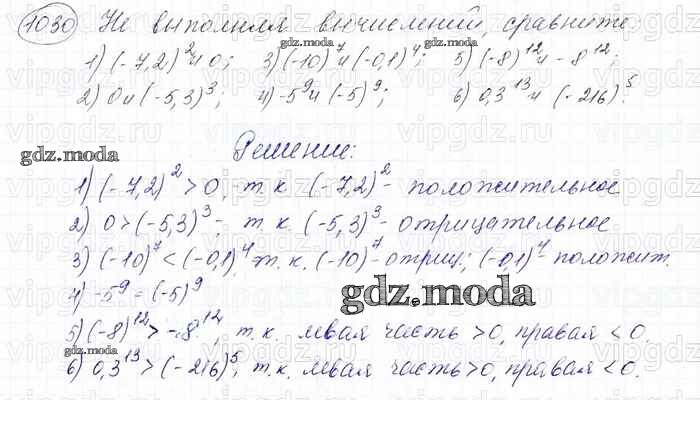 1030 Не выполняя вычислений, сравните:
1) (-7,2)² и 0; 3) (-10)⁷ и (-0,1)⁴; 5) (-8)¹² и -8¹²;
2) 0 и (-5,3)³; 4) -5⁹ и (-5)⁹; 6) 0,3¹³ и (-216)⁵.
Решение:
1) (-7,2)² > 0, т.к. (-7,2)² - положительное
2) 0 > (-5,3)³ - т.к. (-5,3)³ - отрицательное
3) (-10)⁷ < (-0,1)⁴, т.к. (-10)⁷ - отриц.; (-0,1)⁴ - положит.
4) -5⁹ = (-5)⁹
5) (-8)¹² > -8¹², т.к. левая часть > 0, правая < 0.
6) 0,3¹³ > (-216)⁵, т.к. левая часть > 0, правая < 0.
gdz.moda
gdz.moda
gdz.moda
gdz.moda
vipgdz.ru